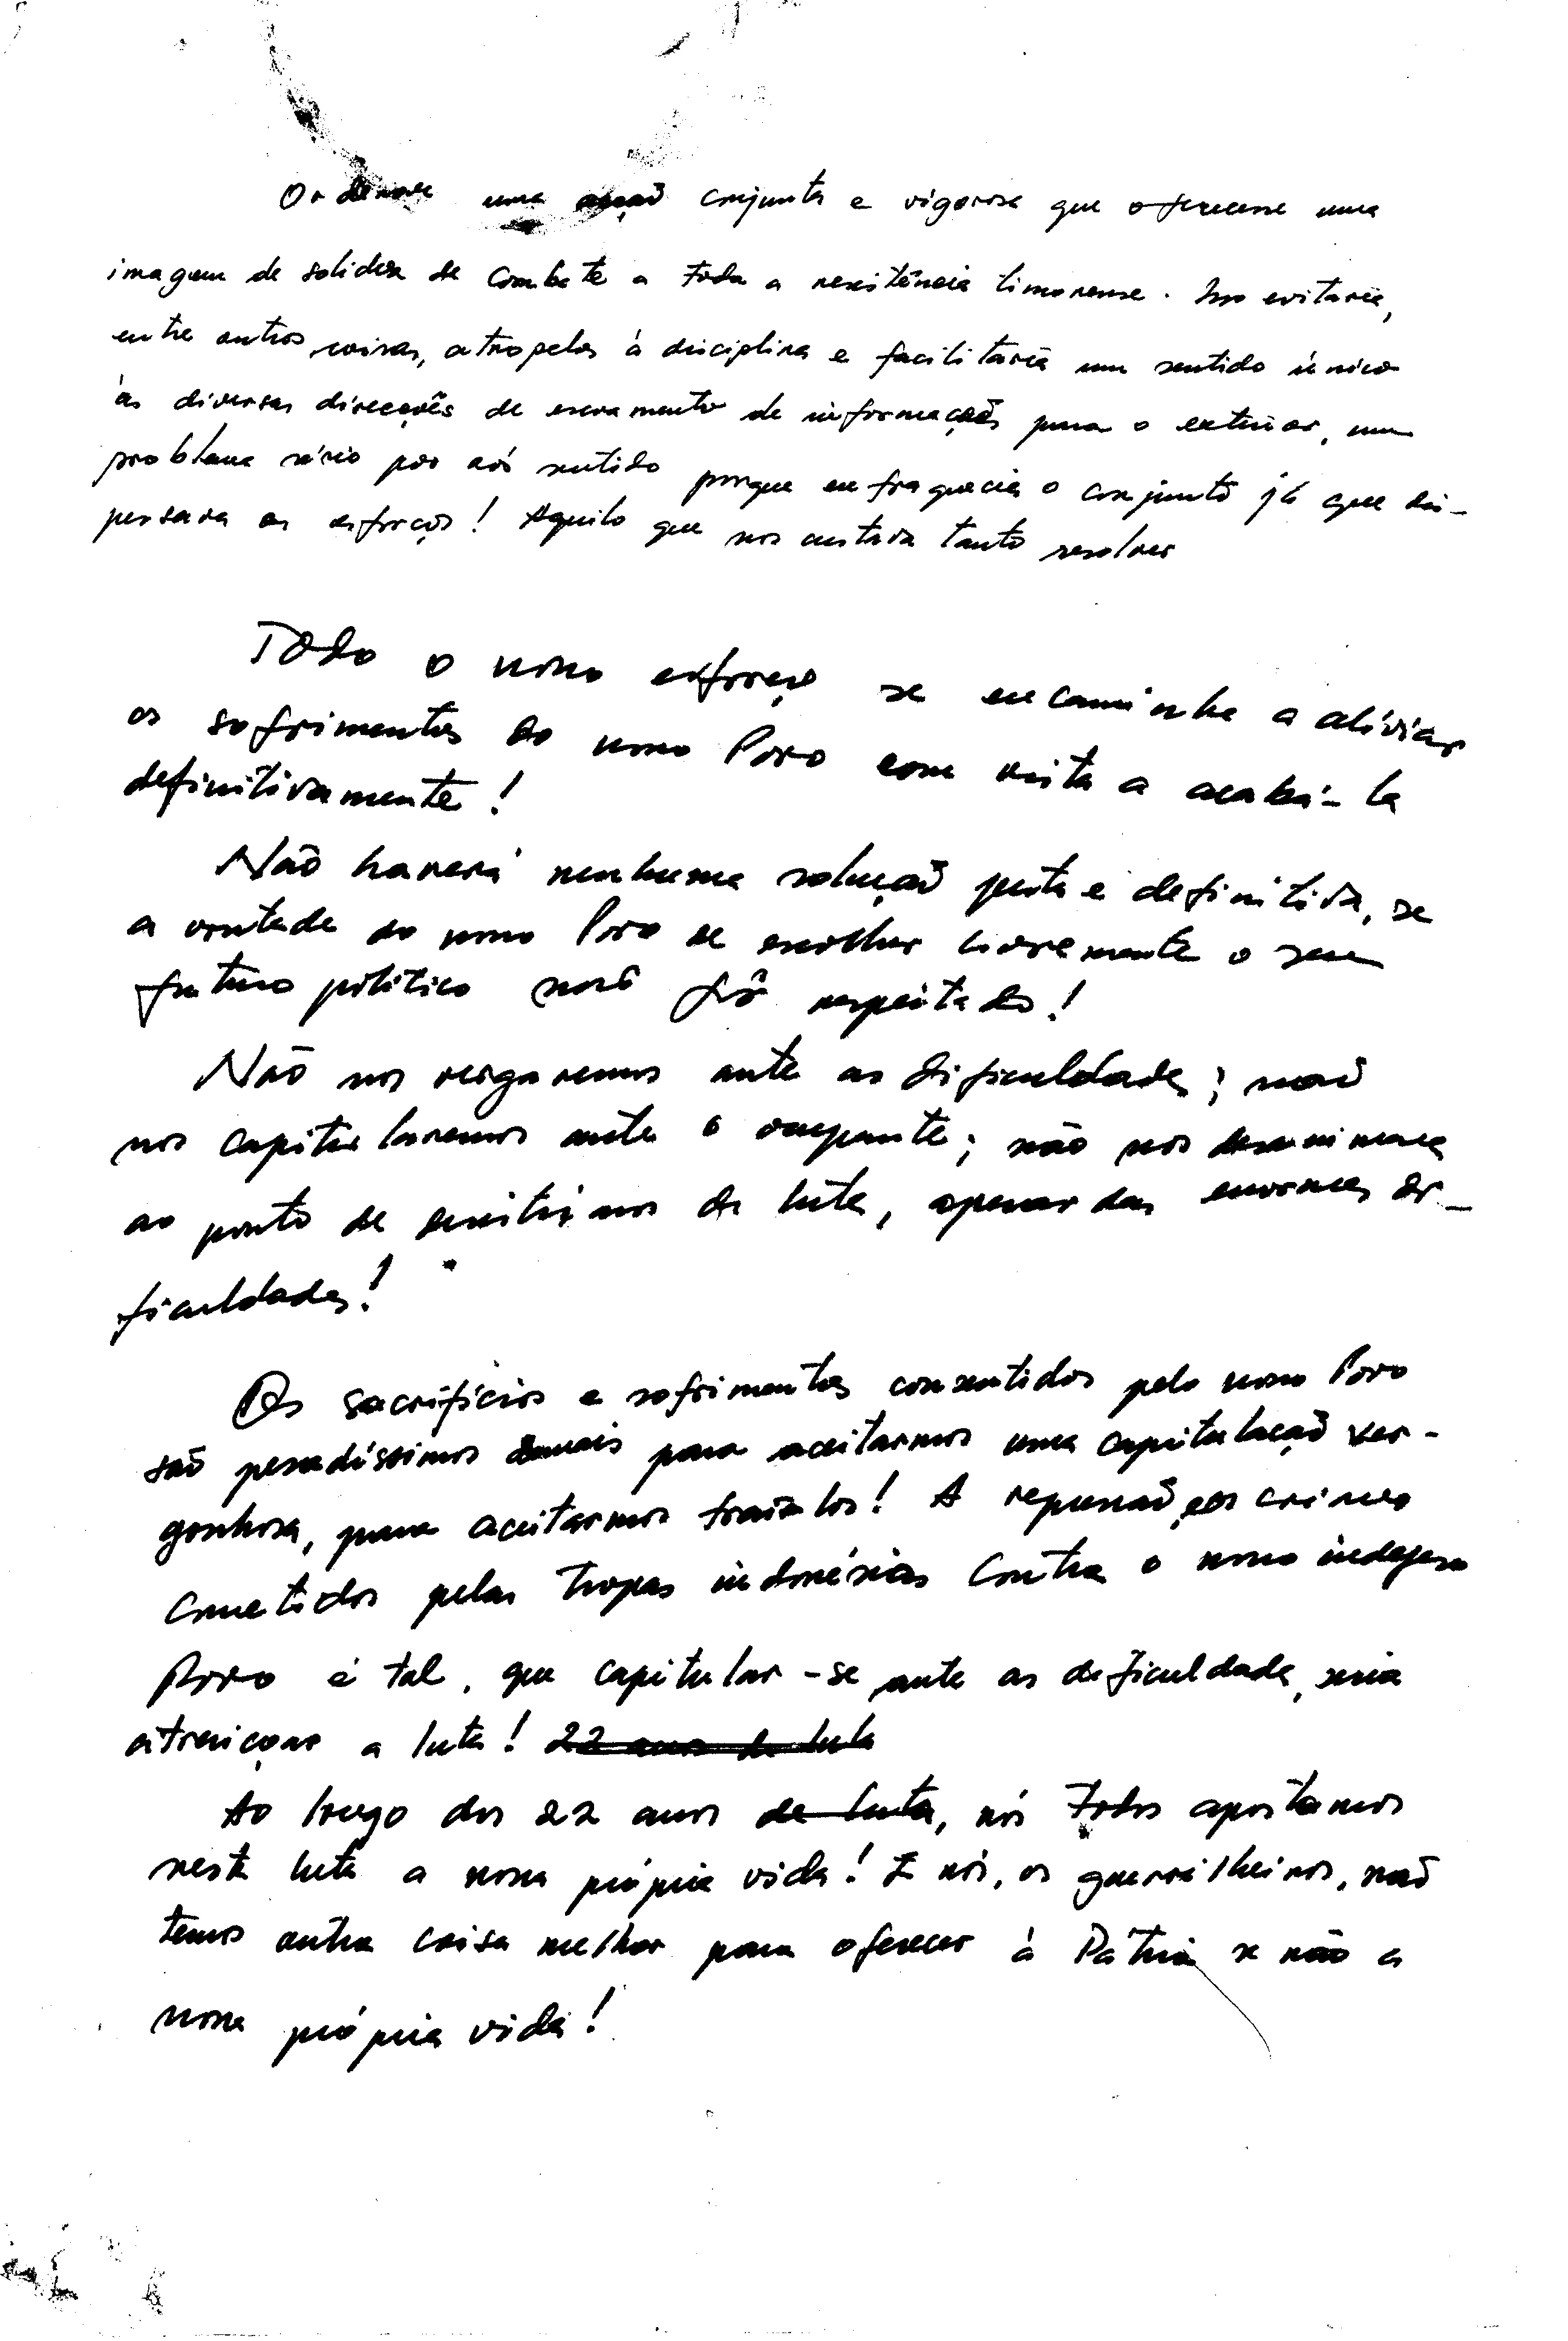 Ordenava uma acção conjunta e vigorosa que oferecesse uma
imagem de solidez de combate a toda a resistência timorense. Isso evitaria,
entre outras coisas, atropelos à disciplina e facilitaria um sentido único
às diversas direcções de escoamento de informações para o exterior, um
problema sério por nós sentido porque enfraquecia o conjunto já que dis-
persava os esforços! Aquilo que nos custava tanto resolver
Todo o nosso esforço se encaminha a aliviar
os sofrimentos do nosso Povo com vista a acabá-la
definitivamente!
Não haverá nenhuma solução justa e definitiva, se
a vontade do nosso Povo de escolher livremente o seu
futuro político não fôr respeitado!
Não nos vergaremos ante as dificuldades; não
nos capitularemos ante o ocupante; não nos desanimará
ao ponto de desistirmos da luta, apesar das enormes di-
ficuldades!
Os sacrifícios e sofrimentos consentidos pelo nosso Povo
são pesadíssimos demais para aceitarmos uma capitulação ver-
gonhosa, para aceitarmos traí-los! A repressão, os crimes
cometidos pelas tropas indonésias contra o nosso indefeso
Povo é tal, que capitular-se ante as dificuldades, seria
atraiçoar a luta! 22 anos de luta
Ao longo dos 22 anos de luta, nós todos apostamos
nesta luta a nossa própria vida! E nós, os guerrilheiros, não
temos outra coisa melhor para oferecer à Pátria se não a
nossa própria vida!